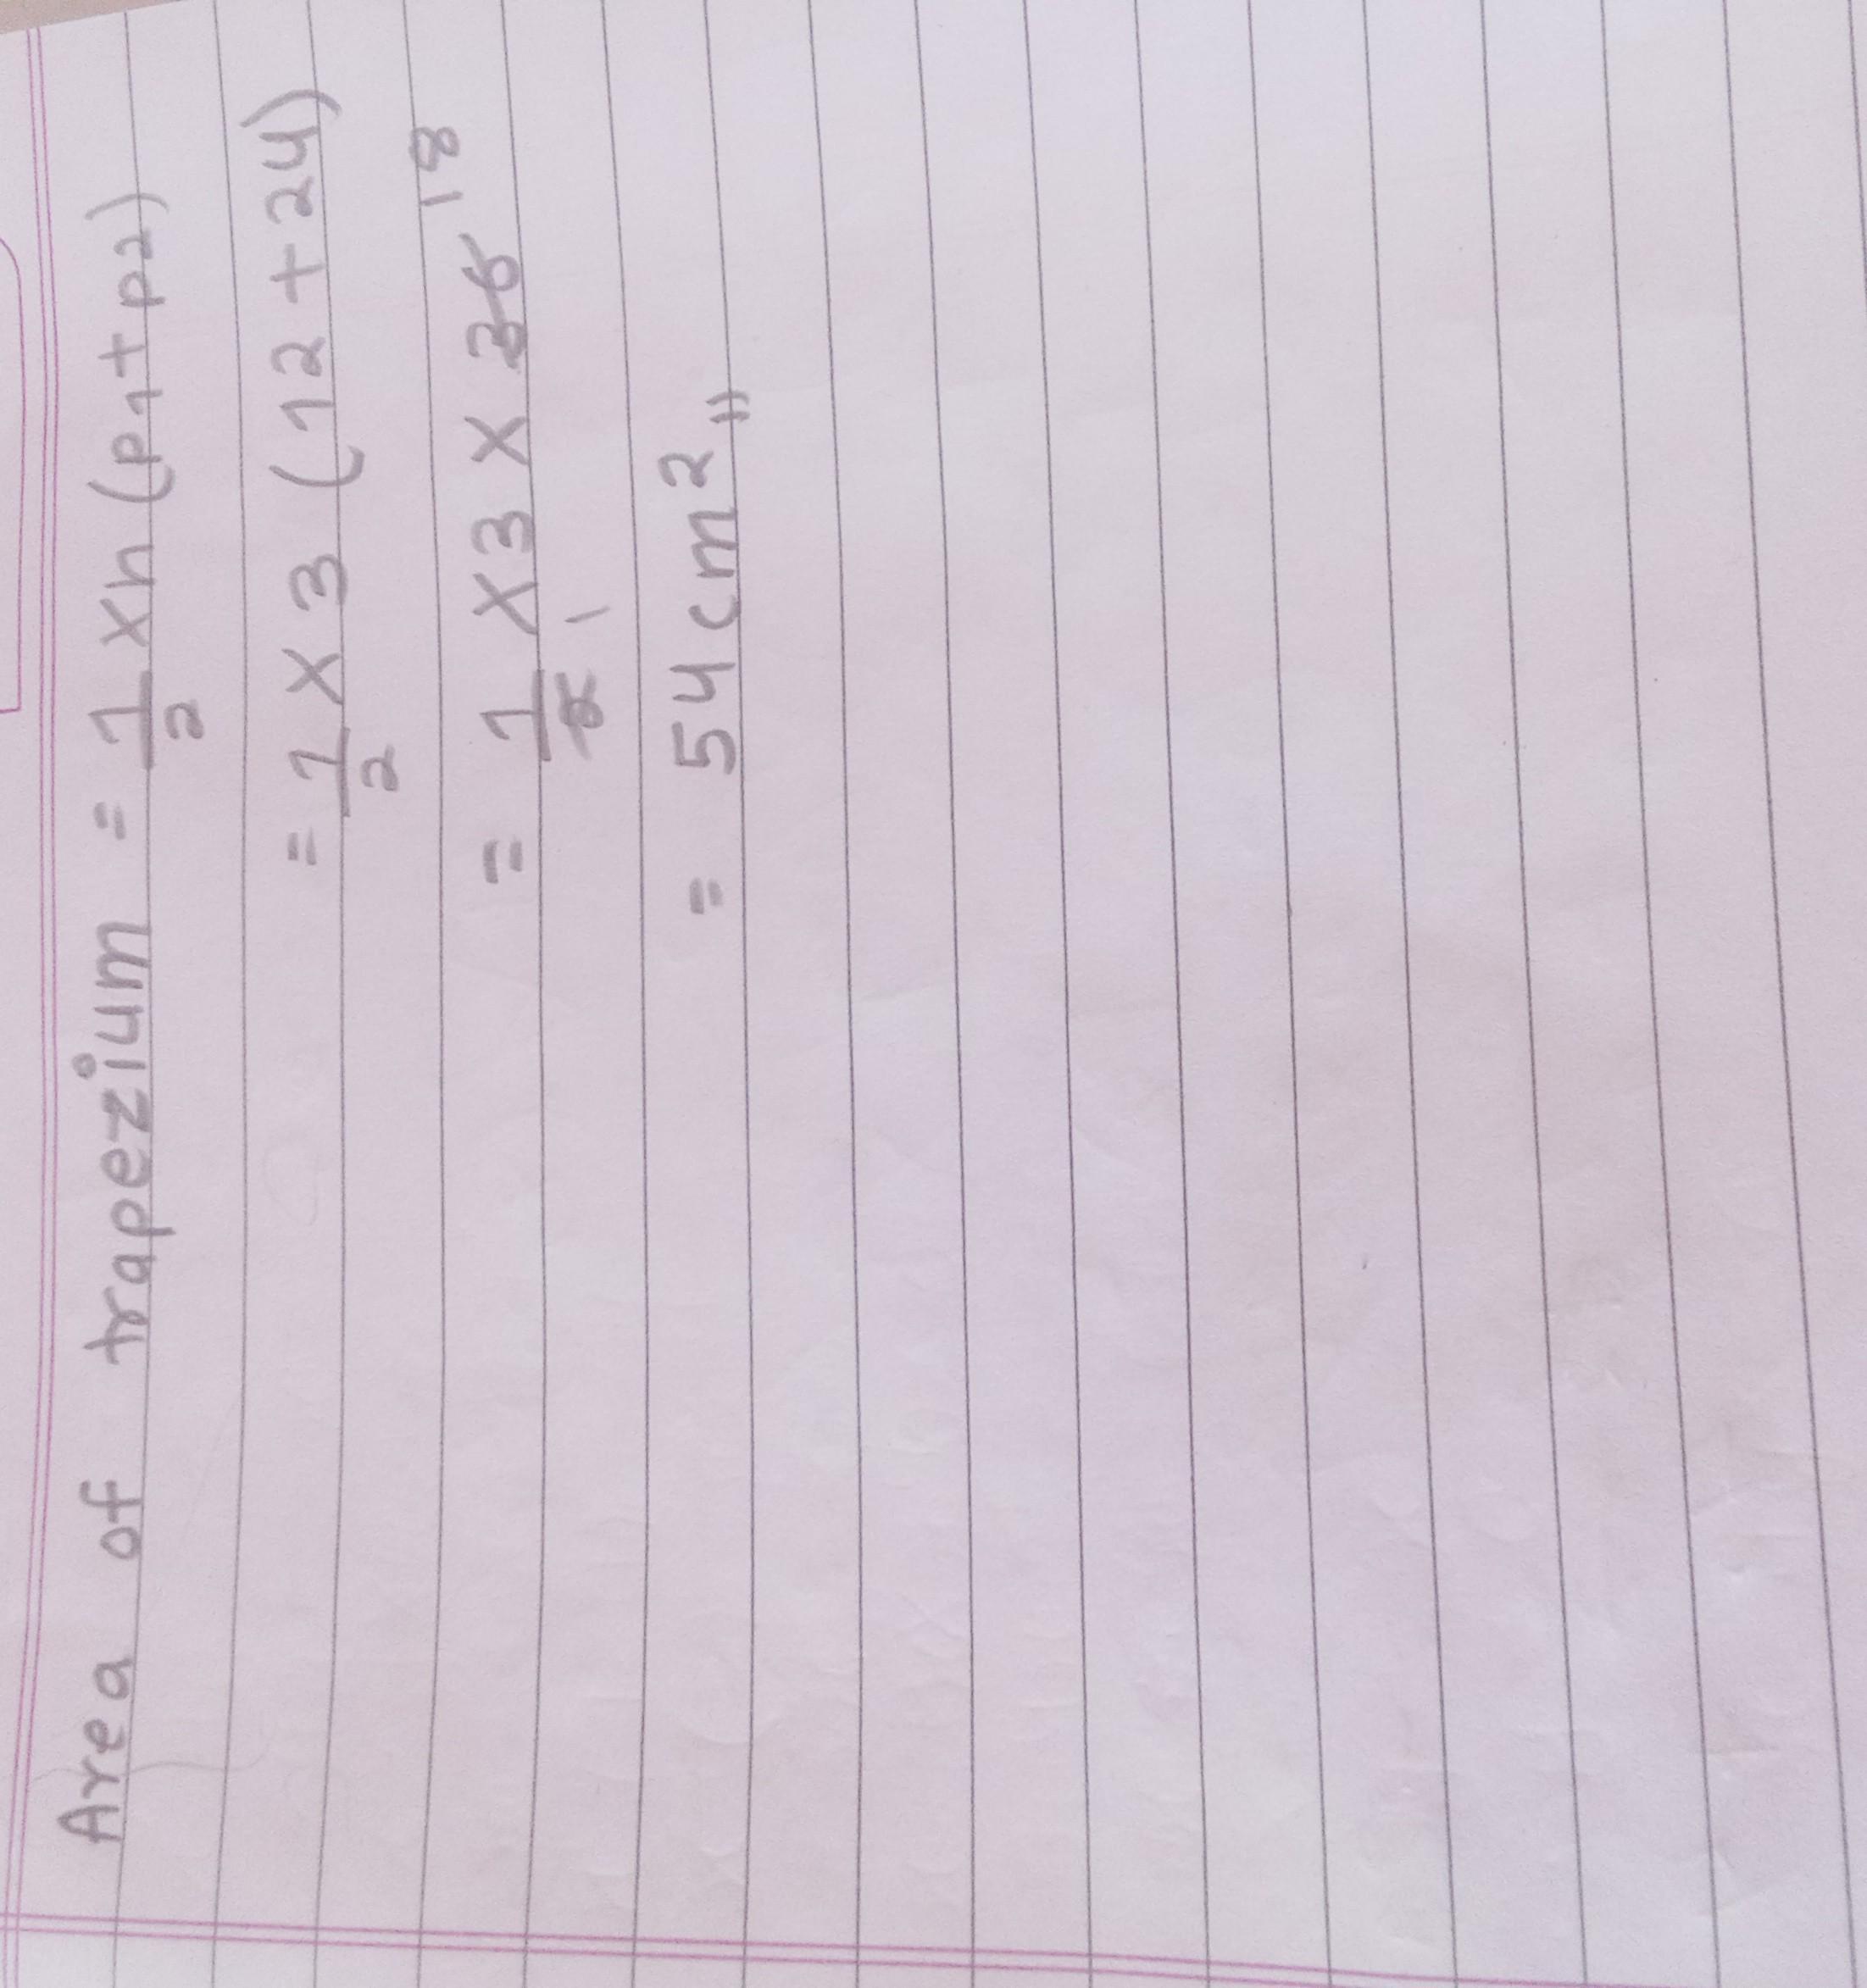 Area of trapezium = 1/2 × h (p1 + p2)
= 1/2 × 3 (12 + 24)
= 1/2 1 × 3 × 36 18
= 54 cm² "